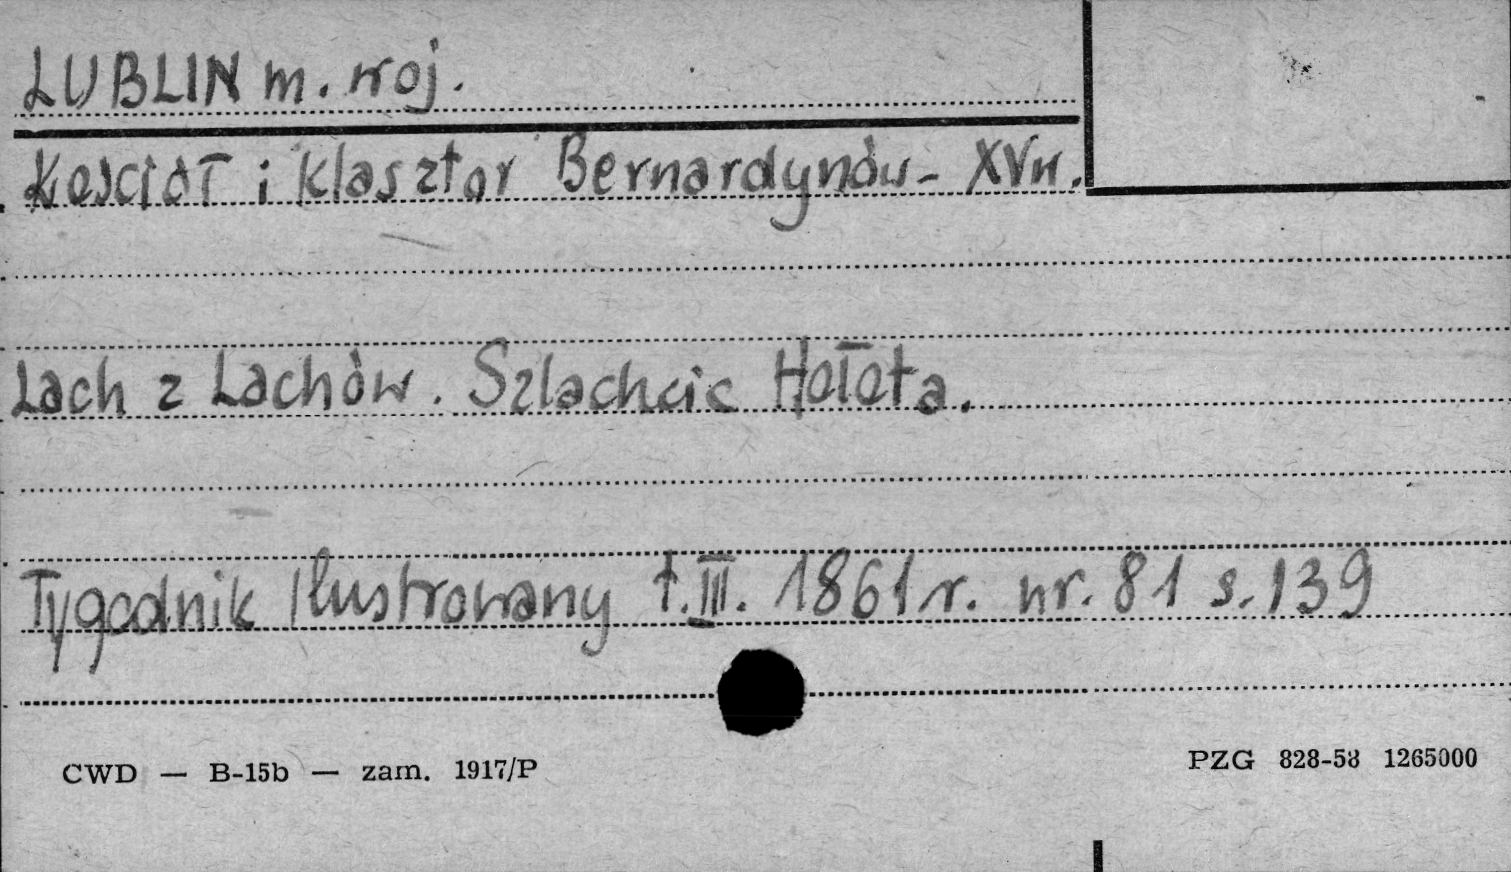 LUBLIN m. woj.
Kościół i Klasztor Bernardynów - XV w.
Lach z Lachów. Szlachcic Hołota.
Tygodnik Ilustrowany t. III. 1861 r. nr. 81 s. 139
CWD — B-15b — zam. 1917/P
PZG 828-58 1265000